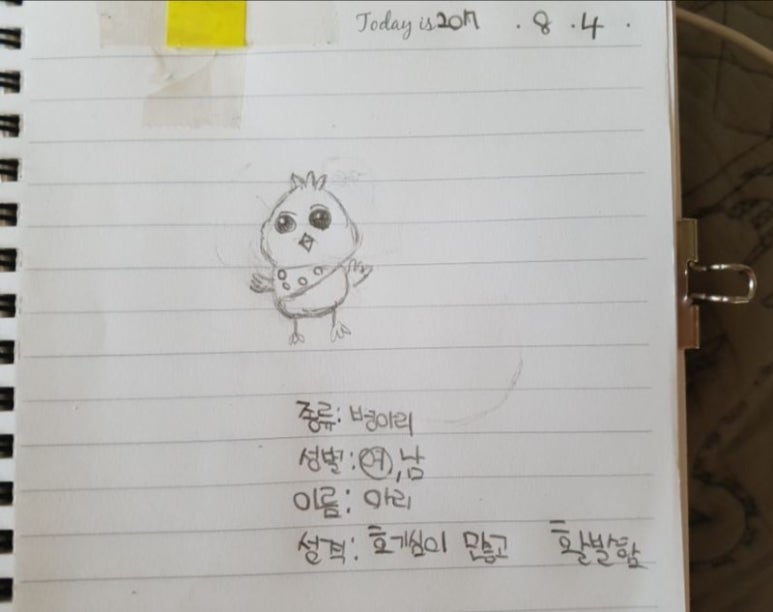 Today is 2017 . 8 . 4 .
종류: 병아리
성별: 여, 남
이름: 아리
성격: 호기심이 많고 활발함